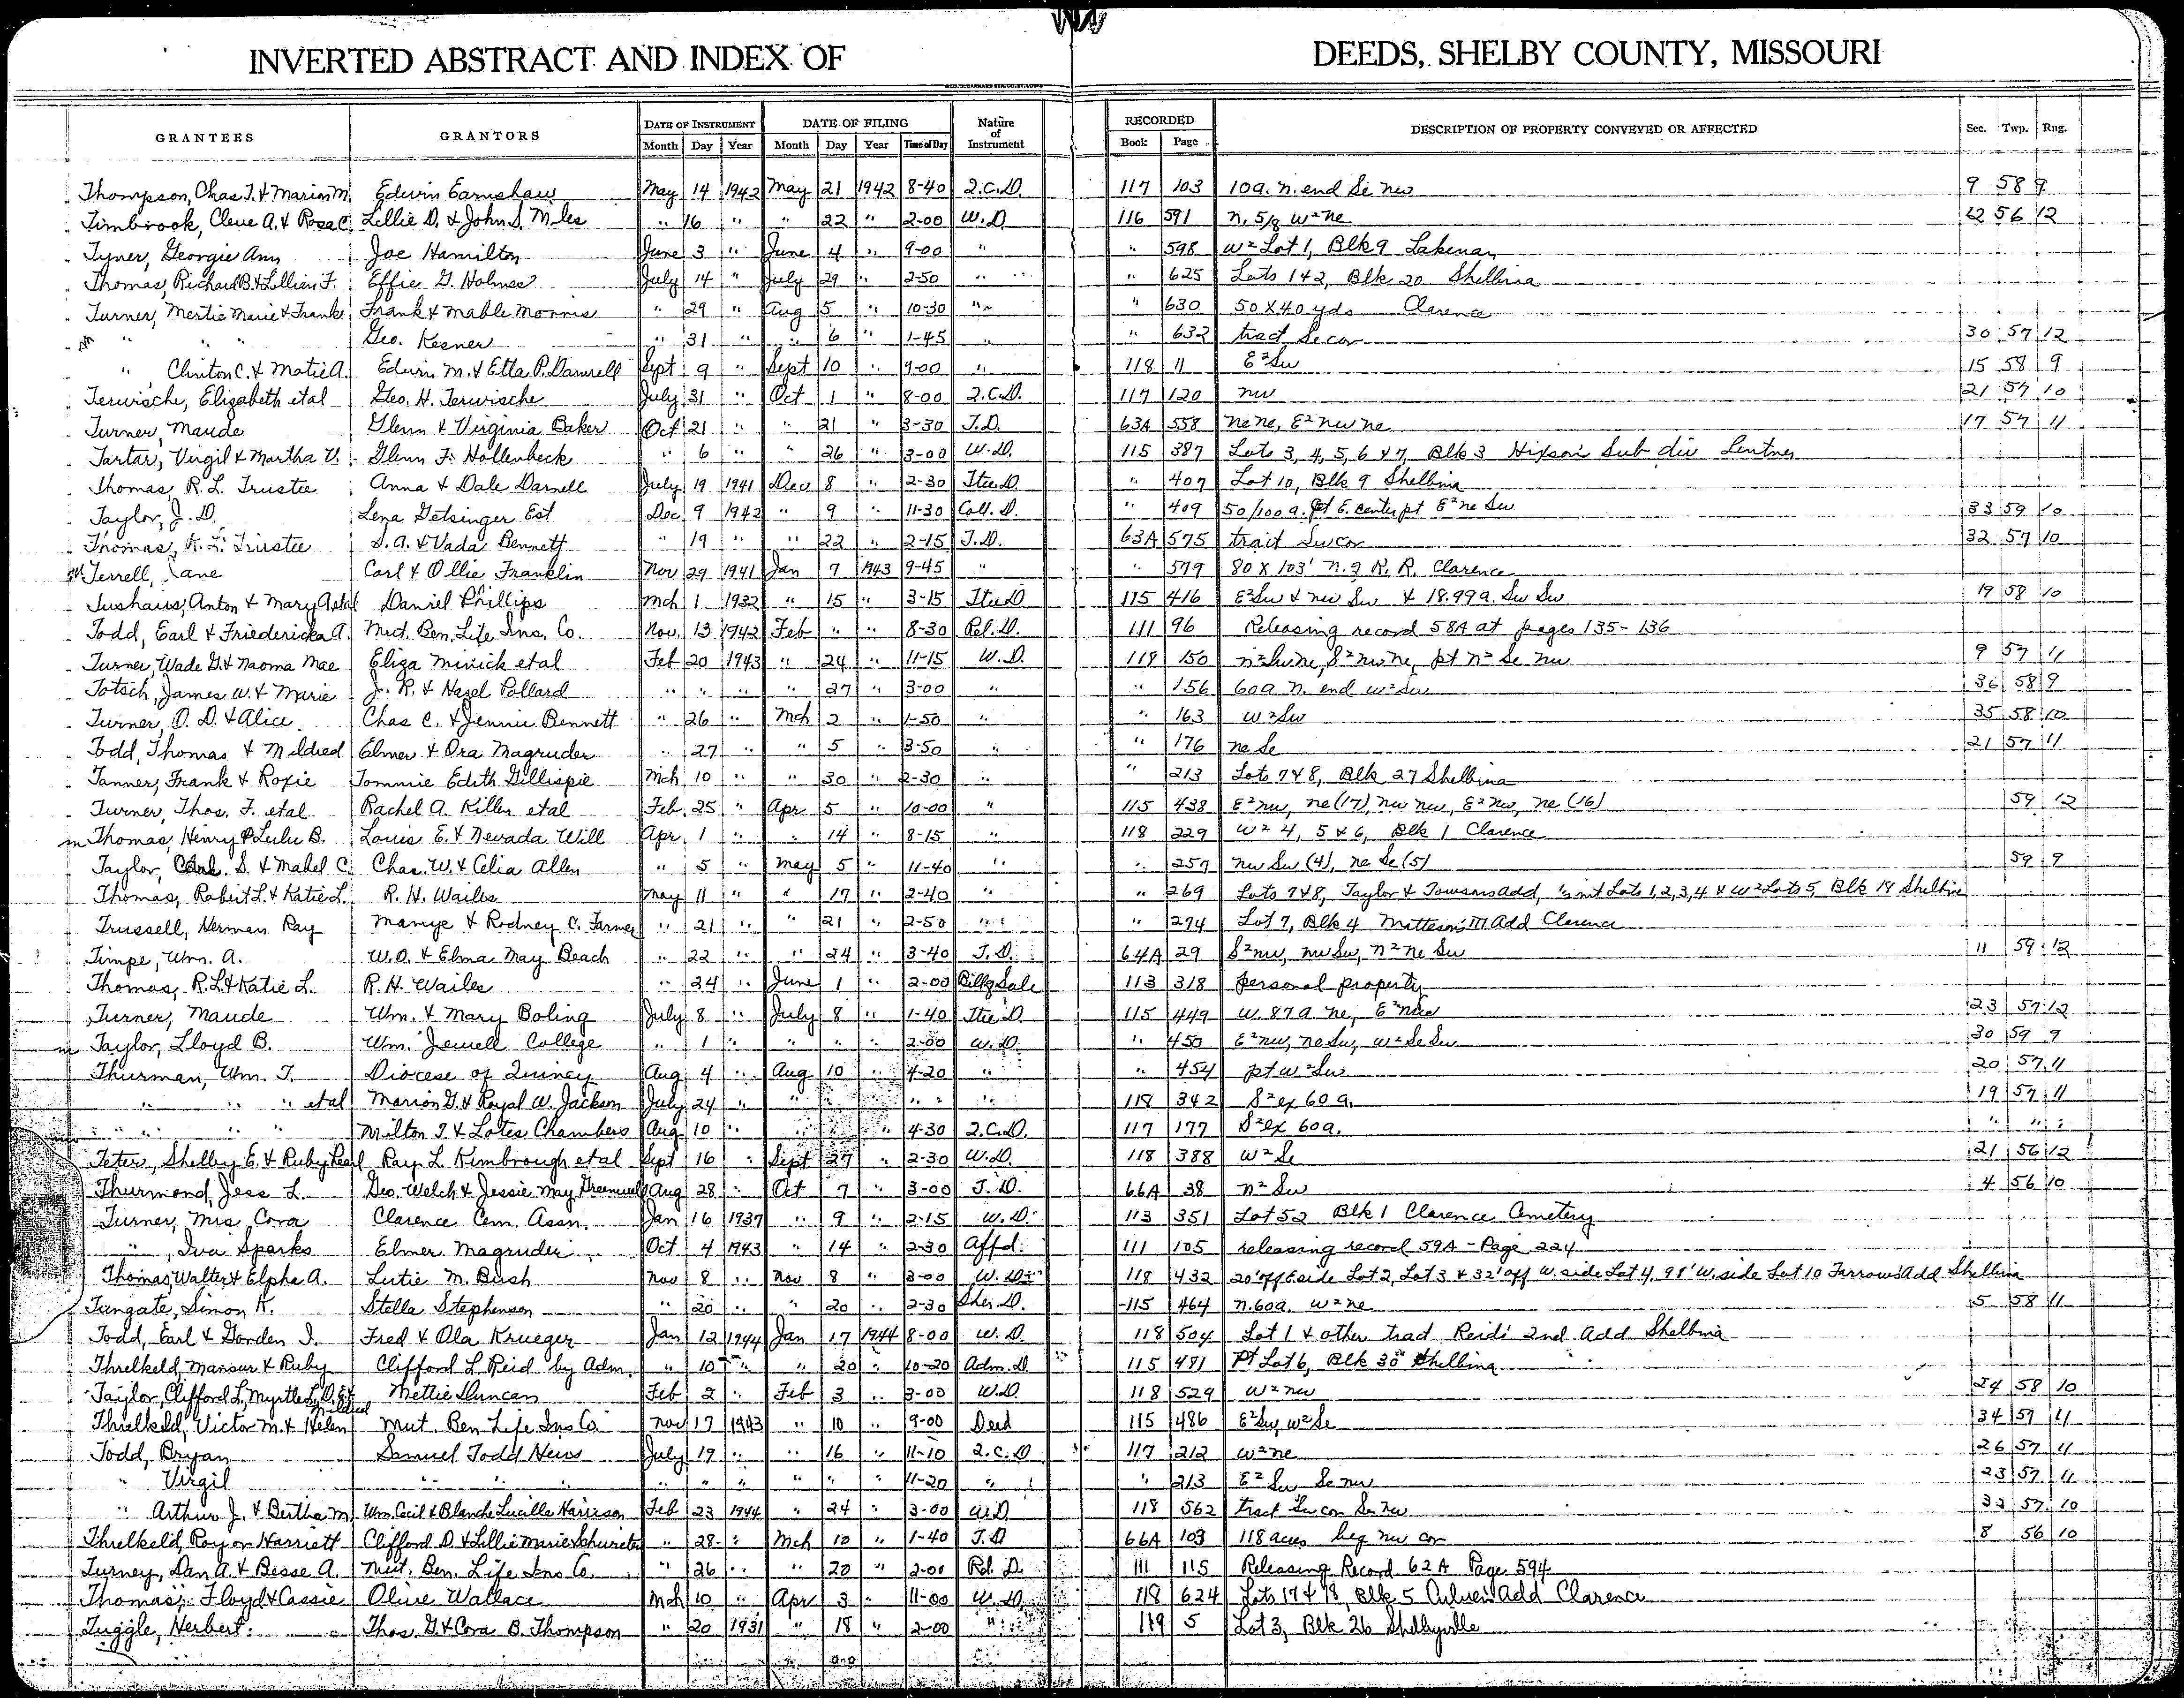 INVERTED ABSTRACT AND INDEX OF DEEDS, SHELBY COUNTY, MISSOURI
GRANTEES GRANTORS DATE OF INSTRUMENT DATE OF FILING Nature of Instrument RECORDED DESCRIPTION OF PROPERTY CONVEYED OR AFFECTED Sec. Twp. Rng.
Month Day Year Month Day Year Time of Day Book Page
Thompson, Chas T. & Marion M. Edwin Earnshaw May 14 1942 May 21 1942 8-40 Q.C.D. 117 103 10a. n. end Se nw 9 58 9
Timbrook, Cleve A. & Rosa C. Lillie D. & John S. Miles " 16 " " 22 " 2-00 W.D. 116 591 n. 5/8 w² ne 12 56 12
Tyner, Georgie Ann Joe Hamilton June 3 " June 4 " 9-00 " " 598 w² Lot 1, Blk 9 Lakenan
Thomas, Richard B. & Lillian F. Effie G. Holmes July 14 " July 29 " 2-50 " " 625 Lots 1 & 2, Blk 20 Shelbina
Turner, Mertie Marie & Frank Frank & Mable Morris " 29 " Aug 5 " 10-30 " " 630 50 X 40 yds Clarence
" " " Geo. Kesner " 31 " " 6 " 1-45 " " 632 tract Se cor 30 57 12
" , Clinton C. & Matie A. Edwin M. & Etta P. Damrell Sept 9 " Sept 10 " 9-00 " 118 11 E² Sw 15 58 9
Terwische, Elizabeth etal Geo. H. Terwische July 31 " Oct 1 " 8-00 Q.C.D. 117 120 nw 21 57 10
Turner, Maude Glenn & Virginia Baker Oct 21 " " 21 " 3-30 T.D. 63A 558 ne ne, E² nw ne 17 57 11
Tartar, Virgil & Martha V. Glenn F. Hollenbeck " 6 " " 26 " 3-00 W.D. 115 387 Lots 3, 4, 5, 6 & 7, Blk 3 Hixson's Sub div Lentner
Thomas, R. L. Trustee Anna & Dale Darnell July 19 1941 Dec 8 " 2-30 Tte D. " 407 Lot 10, Blk 9 Shelbina
Taylor, J. D. Lena Getsinger Est Dec 9 1942 " 9 " 11-30 Coll. D. " 409 50/100 a. pt E. center pt E² ne Sw 33 59 10
Thomas, R. L. Trustee S. A. & Vada Bennett " 19 " " 22 " 2-15 T.D. 63A 575 tract Sw cor 32 57 10
Terrell, Jane Carl & Ollie Franklin Nov 29 1941 Jan 7 1943 9-45 " " 579 80 X 103' n. of R. R. Clarence
Tushaus, Anton & Mary A. etal Daniel Phillips Mch 1 1932 " 15 " 3-15 Tte D 115 416 E² Sw & nw Sw & 18.99 a. Sw Sw 19 58 10
Todd, Earl & Friedericka A. Mut. Ben. Life Ins. Co. Nov. 13 1942 Feb " " 8-30 Rel. D. 111 96 Releasing record 58A at pages 135-136
Turner, Wade G. & Naoma Mae Eliza Minick etal Feb 20 1943 " 24 " 11-15 W.D. 118 150 n² Sw ne, S² nw ne, pt n² Se nw 9 57 11
Totsch, James W. & Marie J. R. & Hazel Pollard " " " " 27 " 3-00 " " 156 60a n. end w² Sw 36 58 9
Turner, O. D. & Alice Chas C. & Jennie Bennett " 26 " Mch 2 " 1-50 " " 163 w² Sw 35 58 10
Todd, Thomas & Mildred Elmer & Ora Magruder " 27 " 5 " 3-50 " " 176 ne Se 21 57 11
Tanner, Frank & Roxie Tommie Edith Gillispie Mch 10 " " 30 " 2-30 " " 213 Lots 7 & 8, Blk 27 Shelbina
Turner, Thos. F. etal Rachel A. Killen etal Feb. 25 " Apr 5 " 10-00 " 115 438 E² nw, ne (17) nw nw, E² nw, ne (16) 59 12
Thomas, Henry & Lulu B. Louis E. & Nevada Will Apr. 1 " " 14 " 8-15 " 118 229 w² 4, 5 & 6, Blk 1 Clarence
Taylor, Carl S. & Mabel C. Chas. W. & Celia Allen " 5 " May 5 " 11-40 " " 257 nw Sw (4), ne Se (5) 59 9
Thomas, Robert L. & Katie L. R. H. Wailes May 11 " " 17 " 2-40 " " 269 Lots 7 & 8, Taylor & Towsons add, ½ int Lots 1, 2, 3, 4 & W² Lots 5, Blk 18 Shelbina
Trussell, Herman Ray Mamye & Rodney C. Farmer " 21 " " 21 " 2-50 " " 274 Lot 7, Blk 4 Matteson's III Add Clarence
Timpe, Wm. A. W. O. & Elma May Beach " 22 " " 24 " 3-40 T.D. 64A 29 S² nw, nw Sw, n² ne Sw 11 59 12
Thomas, R. L. & Katie L. R. H. Wailes " 24 " June 1 " 2-00 Bill of Sale 113 318 personal property
Turner, Maude Wm. & Mary Boling July 8 " July 8 " 1-40 Tte D. 115 449 w. 87 a ne, E² nw 23 57 12
Taylor, Lloyd B. Wm. Jewell College " 1 " " " " 2-00 W.D. " 450 E² nw, ne Sw, w² Se Sw 30 59 9
Thurman, Wm. T. Diocese of Quincy Aug 4 " Aug 10 " 4-20 " " 454 pt w² Sw 20 57 11
" " " etal Marion G. & Royal W. Jackson July 24 " " " " " 118 342 S² ex 60 a. 19 57 11
" " " " Milton T. & Lotes Chambers Aug 10 " " " 4-30 Q.C.D. 117 177 S² ex 60a. " " "
Teter, Shelby E. & Ruby Pearl Ray L. Kimbrough etal Sept 16 " Sept 27 " 2-30 W.D. 118 388 w² Se 21 56 12
Thurmond, Jess L. Geo. Welch & Jessie May Greenwell Aug 28 " Oct 7 " 3-00 T.D. 66A 38 n² Sw 4 56 10
Turner, Mrs Cora Clarence Cem. Assn. Jan 16 1937 " 9 " 2-15 W.D. 113 351 Lot 52 Blk 1 Clarence Cemetery
" , Iva Sparks Elmer Magruder Oct 4 1943 " 14 " 2-30 Affd. 111 105 releasing record 59A - Page 224
Thomas, Walter & Elpha A. Lutie M. Bush Nov 8 " Nov 8 " 3-00 W.D. 118 432 20' off E side Lot 2, Lot 3 & 32' off W. side Lot 4, 98' W. side Lot 10 Farrows Add Shelbina
Tungate, Simon K. Stella Stephenson " 20 " " 20 " 2-30 Sher. D. 115 464 n. 60a. w² ne 5 58 11
Todd, Earl & Gorden I. Fred & Ola Krueger Jan 12 1944 Jan 17 1944 8-00 W.D. 118 504 Lot 1 & other tract Reid's 2nd Add Shelbina
Threlkeld, Mansur & Ruby Clifford L. Reid by Adm. " 10 " " 20 " 10-20 Adm. D. 115 481 Pt Lot 6, Blk 30 Shelbina
Taylor, Clifford L., Myrtle L., D. E. & Mildred Mettie Duncan Feb 2 " Feb 3 " 3-00 W.D. 118 529 w² nw 24 58 10
Threlkeld, Victor M. & Helen Mut. Ben Life Ins Co. Nov 17 1943 " 10 " 9-00 Deed 115 486 E² Sw, w² Se 34 57 11
Todd, Bryan Samuel Todd Heirs July 19 " " 16 " 11-10 Q.C.D 117 212 w² ne 26 57 11
" Virgil " " " " " " " " " 11-20 " " 213 E² Sw Se nw 23 57 11
" Arthur J. & Bertha M. Wm. Cecil & Blanche Lucille Harrison Feb 23 1944 " 24 " 3-00 W.D. 118 562 tract Sw cor Se nw 32 57 10
Threlkeld, Roy or Harriett Clifford D. & Lillie Marie Schwieter " 28 " Mch 10 " 1-40 T.D 66A 103 118 acres beg nw cor 8 56 10
Turney, Dan A. & Besse A. Mut. Ben. Life Ins Co. " 26 " " 20 " 2-00 Rel. D. 111 115 Releasing Record 62A Page 594
Thomas, Floyd & Cassie Olive Wallace Mch 10 " Apr 3 " 11-00 W.D. 118 624 Lots 17 & 18, Blk 5 Culver's Add Clarence
Tuggle, Herbert Thos. G. & Cora B. Thompson " 20 1931 " 18 " 2-00 " 119 5 Lot 3, Blk 26 Shelbyville